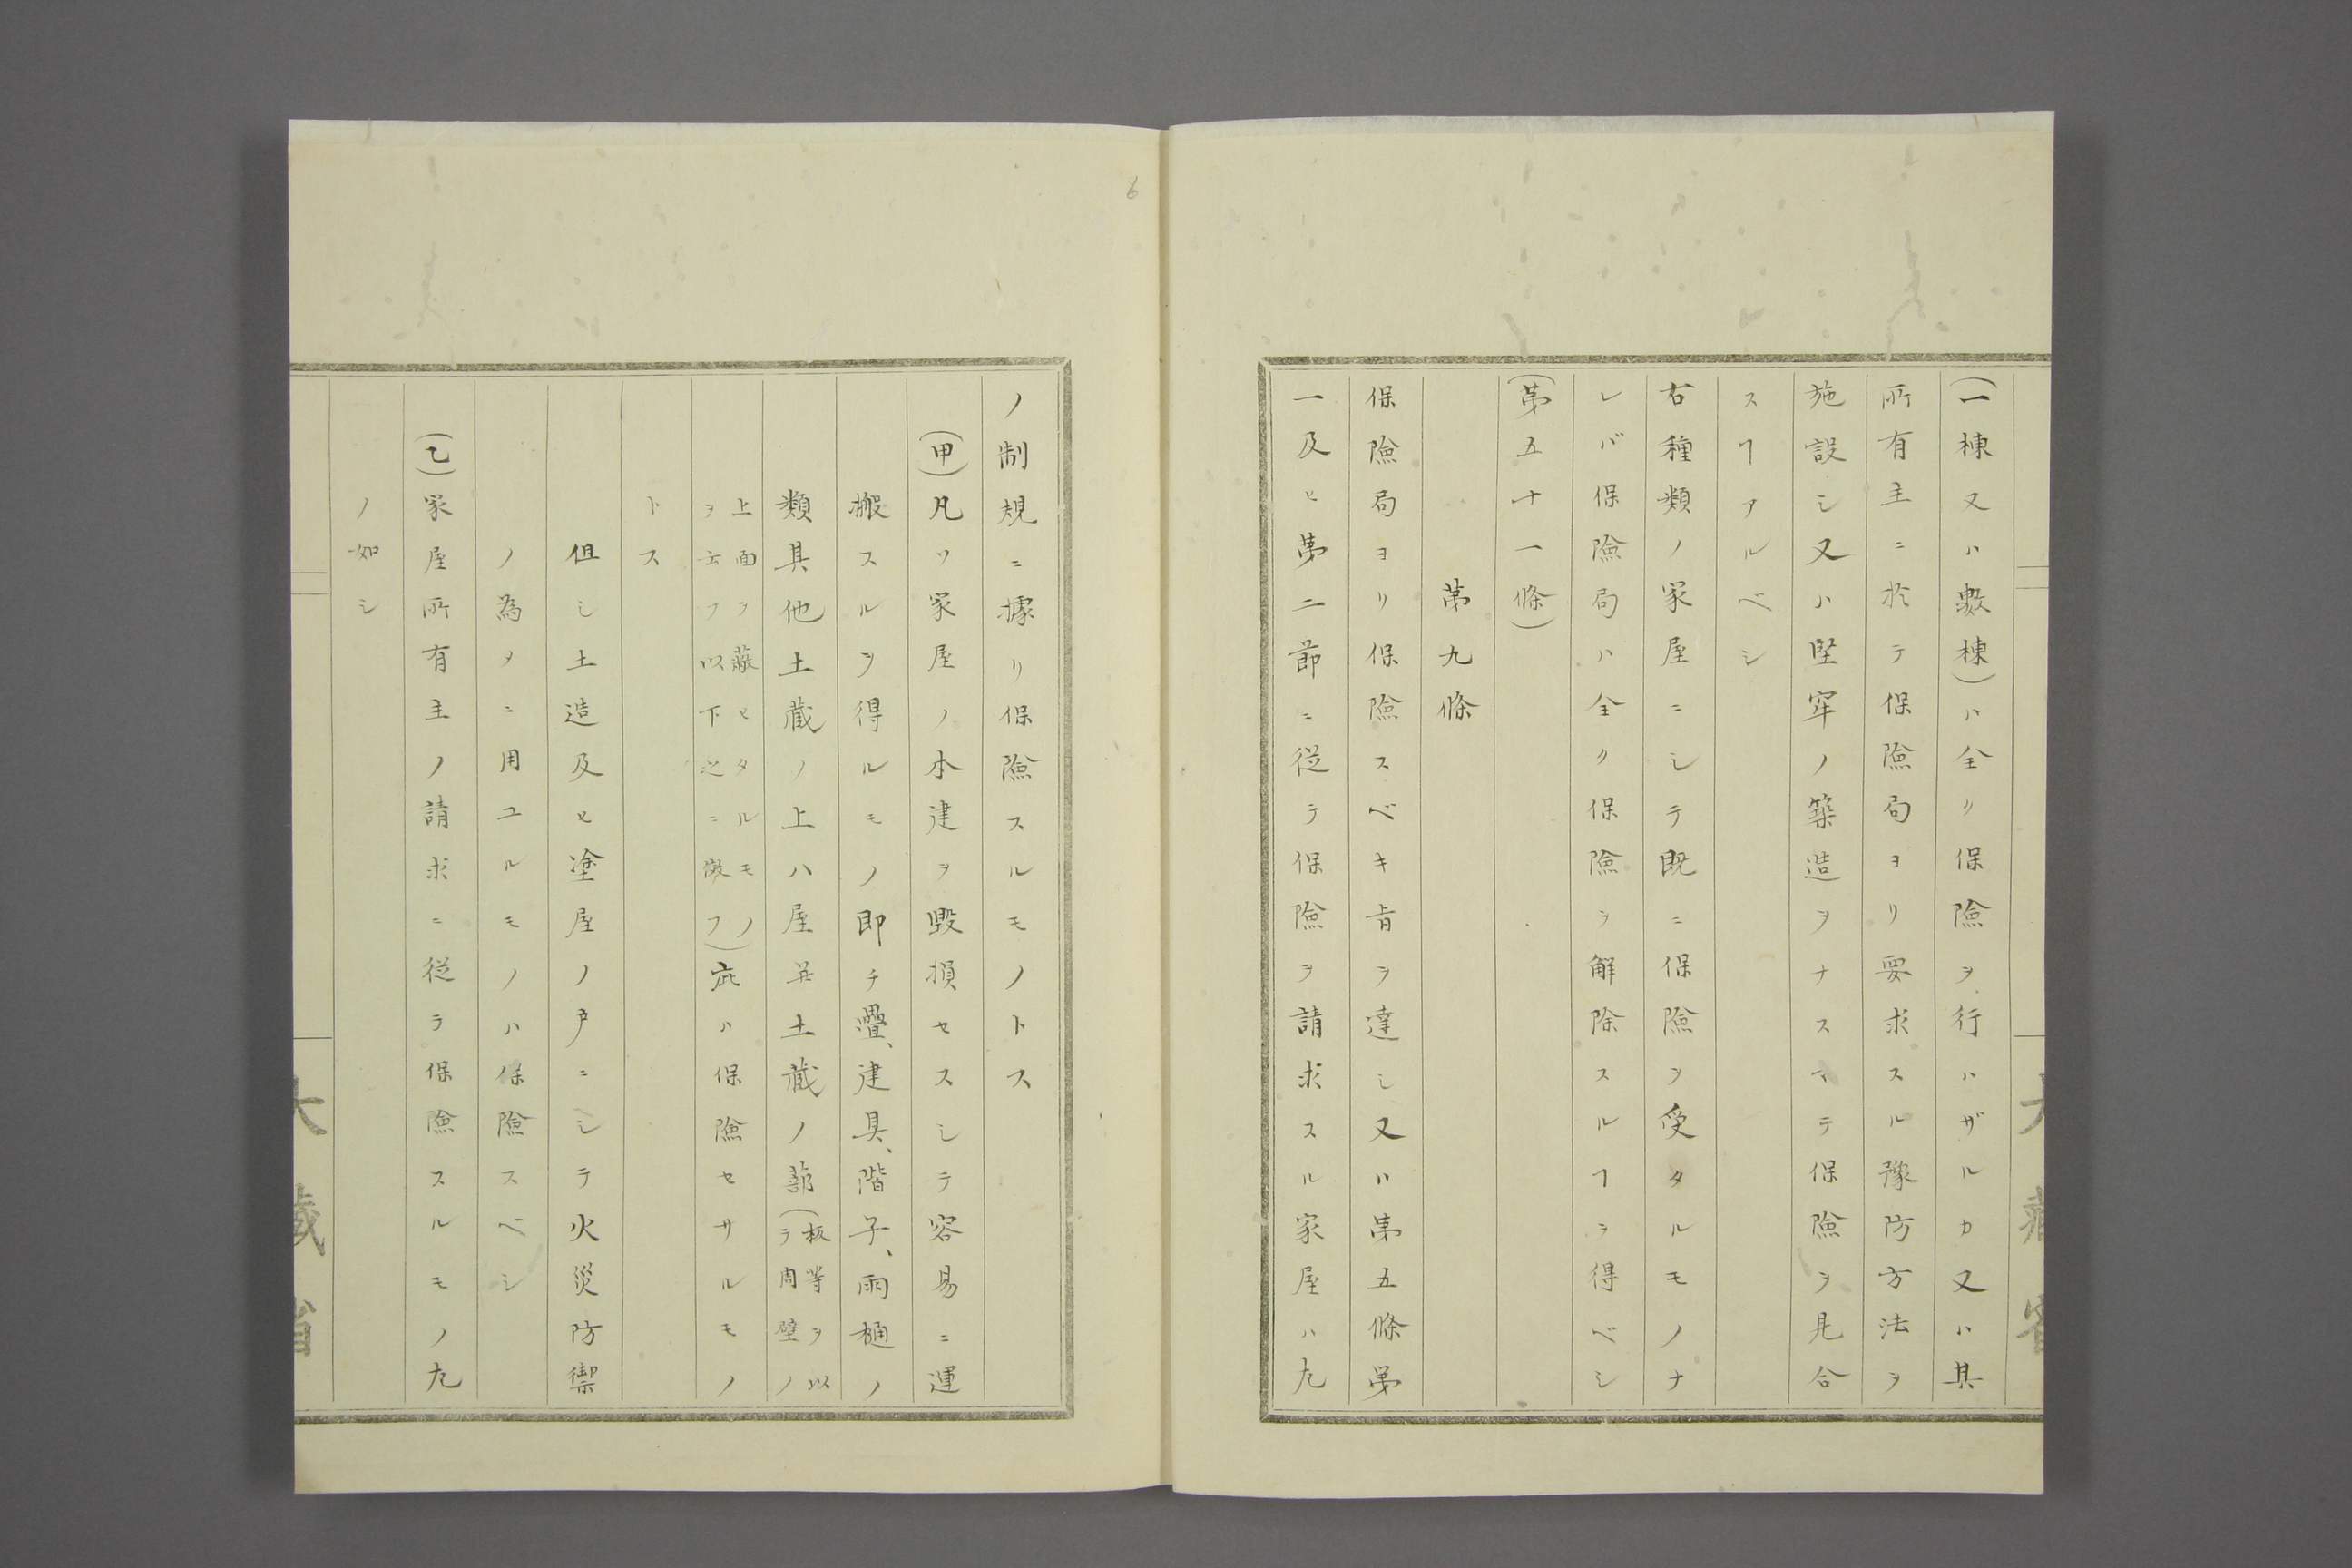 (一棟又ハ數棟)ハ全ク保險ヲ行ハザルカ又ハ其
所有主ニ於テ保險局ヨリ要求スル豫防方法ヲ
施設シ又ハ堅牢ノ築造ヲナスマテ保險ヲ見合
スヿアルベシ
右種類ノ家屋ニシテ既ニ保險ヲ受タルモノナ
レバ保險局ハ全ク保險ヲ解除スルヿヲ得ベシ
(第五十一條)
第九條
保險局ヨリ保險スベキ旨ヲ達シ又ハ第五條第
一及ヒ第二節ニ従テ保險ヲ請求スル家屋ハ左
6
ノ制規ニ據リ保險スルモノトス
(甲)凡ソ家屋ノ本建ヲ毀損セスシテ容易ニ運
搬スルヲ得ルモノ即チ疊、建具、階子、雨樋ノ
類其他土藏ノ上ハ屋并土藏ノ蔀(板等ヲ以
テ周壁ノ
上面ヲ蔽ヒタルモノ
ヲ云フ以下之ニ傚フ)庇ハ保險セサルモノ
トス
但シ土造及ヒ塗屋ノ戸ニシテ火災防禦
ノ為メニ用ユルモノハ保險スベシ
(乙)家屋所有主ノ請求ニ従テ保險スルモノ左
ノ如シ
大藏省